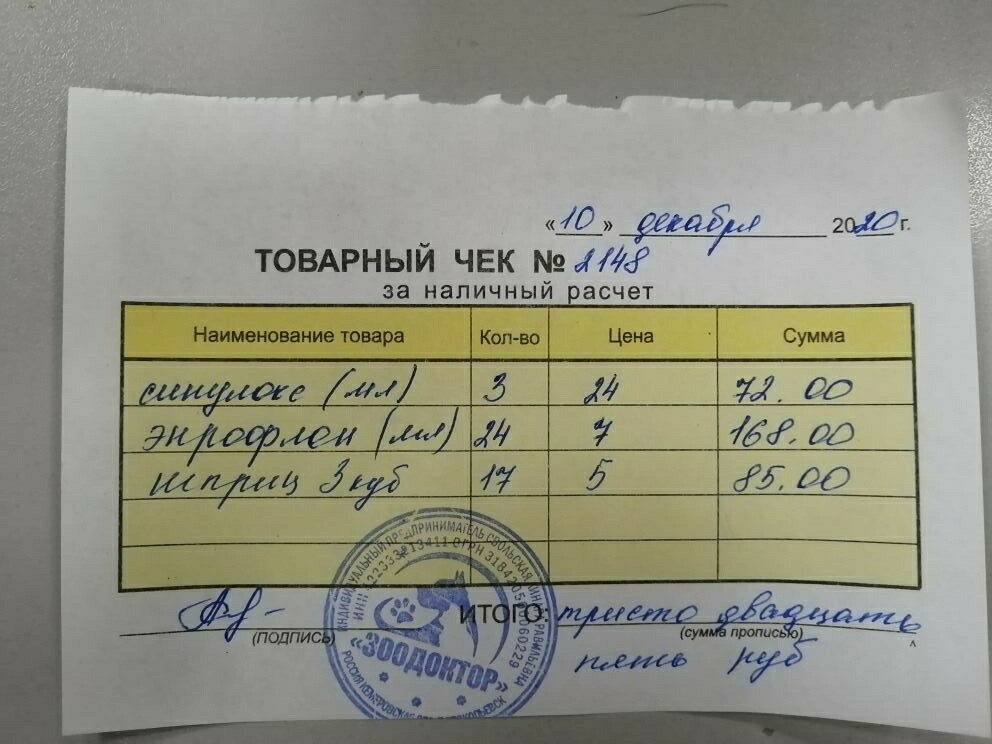 «10» декабря 2020 г.
ТОВАРНЫЙ ЧЕК № 2148
за наличный расчет
Наименование товара Кол-во Цена Сумма
синулокс (мл) 3 24 72.00
энрофлон (мл) 24 7 168.00
шприц 3 куб 17 5 85.00
ИТОГО: тристо двадцать
(ПОДПИСЬ) (сумма прописью)
пять руб
ИНДИВИДУАЛЬНЫЙ ПРЕДПРИНИМАТЕЛЬ
«ЗООДОКТОР»
РОССИЯ КЕМЕРОВСКАЯ